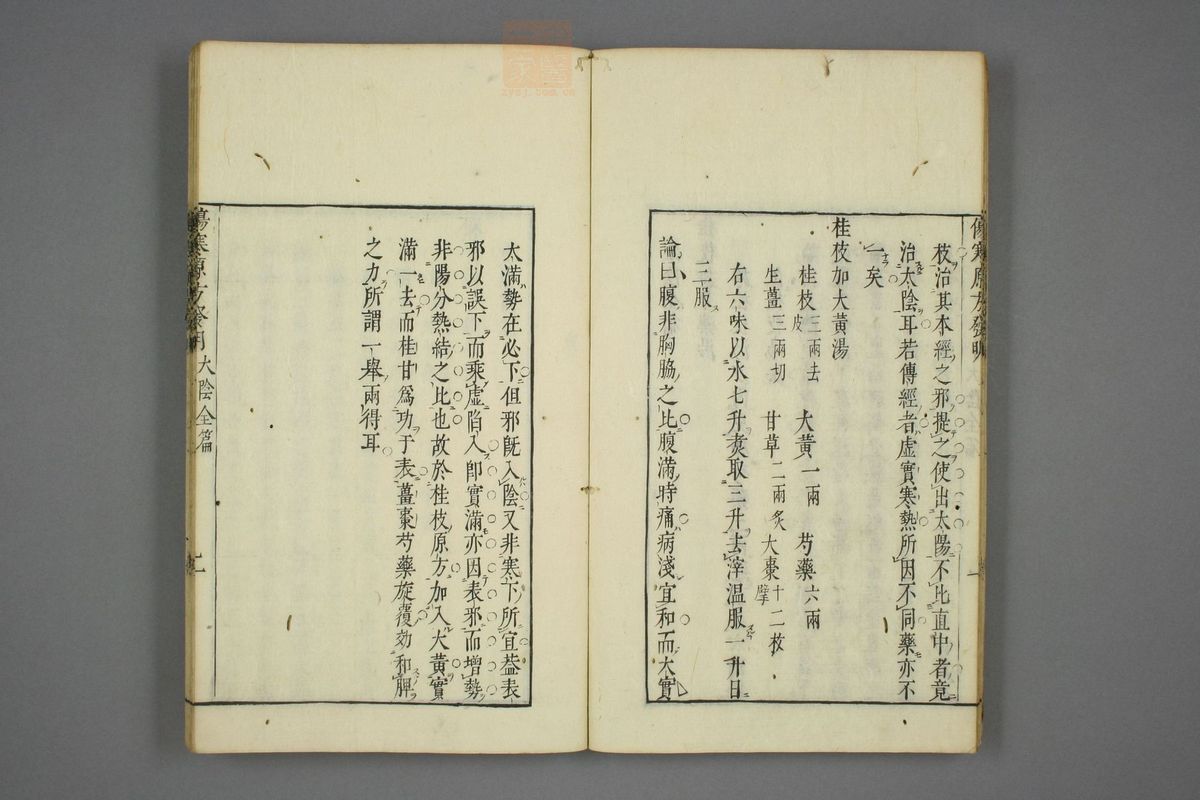 傷寒原方發明
枝治其本經之邪提之使出太陽不比直中者竟
治太陰耳若傳經者虛實寒熱所因不同藥亦不
一矣
桂枝加大黃湯
桂枝三兩去皮 大黃一兩 芍藥六兩
生薑三兩切 甘草二兩炙 大棗十二枚擘
右六味以水七升煑取三升去滓溫服一升日
三服
論曰腹非胸脇之比腹滿時痛病淺宜和而大實
太滿勢在必下但邪旣入陰又非寒下所宜葢表
邪以誤下而乘虛陷入卽實滿亦因表邪而增勢
非陽分熱結之比也故於桂枝原方加入大黃實
滿一去而桂甘爲功于表薑棗芍藥旋覆効和脾
之力所謂一舉兩得耳
傷寒原方發明 太陰全篇
zysj.com.cn